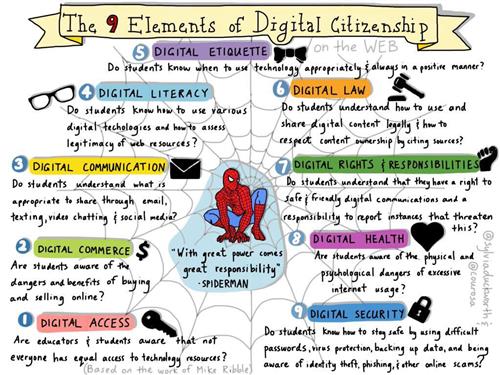 The 9 Elements of Digital Citizenship
on the WEB
5 DIGITAL ETIQUETTE
Do students know when to use technology appropriately & always in a positive manner?
4 DIGITAL LITERACY
Do students know how to use various
digital techologies and how to assess
legitimacy of web resources?
6 DIGITAL LAW
Do students understand how to use and
share digital content legally & how to
respect content ownership by citing sources?
3 DIGITAL COMMUNICATION
Do students understand what is
appropriate to share through email,
texting, video chatting & social media?
7 DIGITAL RIGHTS & RESPONSIBILITIES
Do students understand that they have a right to
safe & friendly digital communications and a
responsibility to report instances that threaten
this?
2 DIGITAL COMMERCE
$
Are students aware of the
dangers and benefits of buying
and selling online?
"With great power comes
great responsibility"
-SPIDERMAN
8 DIGITAL HEALTH
Are students aware of the physical and
psychological dangers of excessive
internet usage?
@sylviaduckworth &
@courosa
1 DIGITAL ACCESS
Are educators & students aware that not
everyone has equal access to technology resources?
(Based on the work of Mike Ribble)
9 DIGITAL SECURITY
Do students know how to stay safe by using difficult
passwords, virus protection, backing up data, and being
aware of identity theft, phishing, & other online scams?